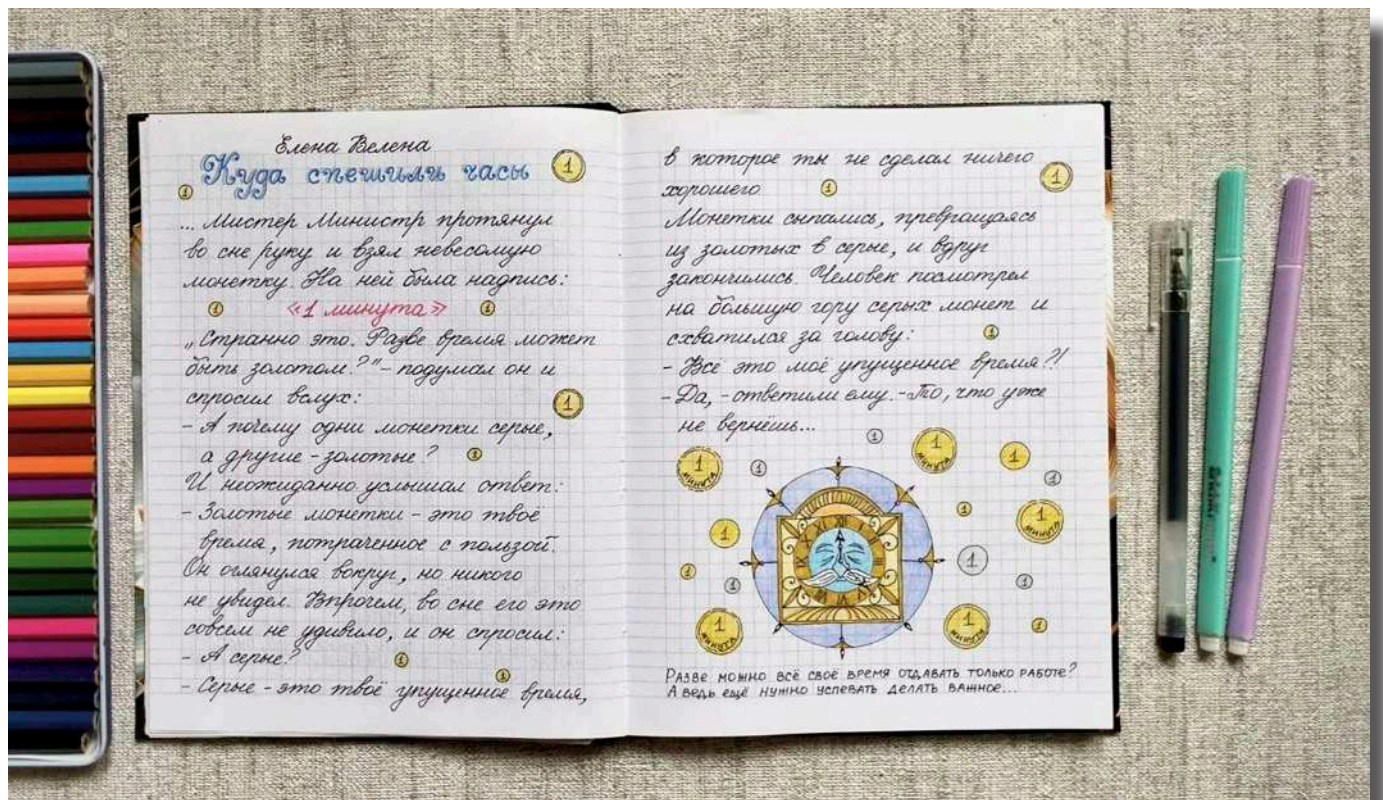 Елена Велена
Куда спешили часы
1
1
... Мистер Министр протянул
во сне руку и взял невесомую
монетку. На ней была надпись:
1
«1 минута»
1
„Странно это. Разве время может
быть золотом?" - подумал он и
спросил вслух:
1
- А почему одни монетки серые,
а другие - золотые?
1
И неожиданно услышал ответ:
- Золотые монетки - это твоё
время, потраченное с пользой.
Он оглянулся вокруг, но никого
не увидел. Впрочем, во сне его это
совсем не удивило, и он спросил:
- А серые?
1
1
- Серые - это твоё упущенное время,
в которое ты не сделал ничего
хорошего
1
1
Монетки сыпались, превращаясь
из золотых в серые, и вдруг
закончились. Человек посмотрел
на большую гору серых монет и
схватился за голову:
1
- Всё это моё упущенное время?!
- Да, - ответили ему. - То, что уже
не вернёшь...
1
1 минута
1
1 минута
1
1
1
1
1 минута
1
1
1
1
1
1 минута
1 минута
1
Разве можно всё своё время отдавать только работе?
А ведь ещё нужно успевать делать важное...